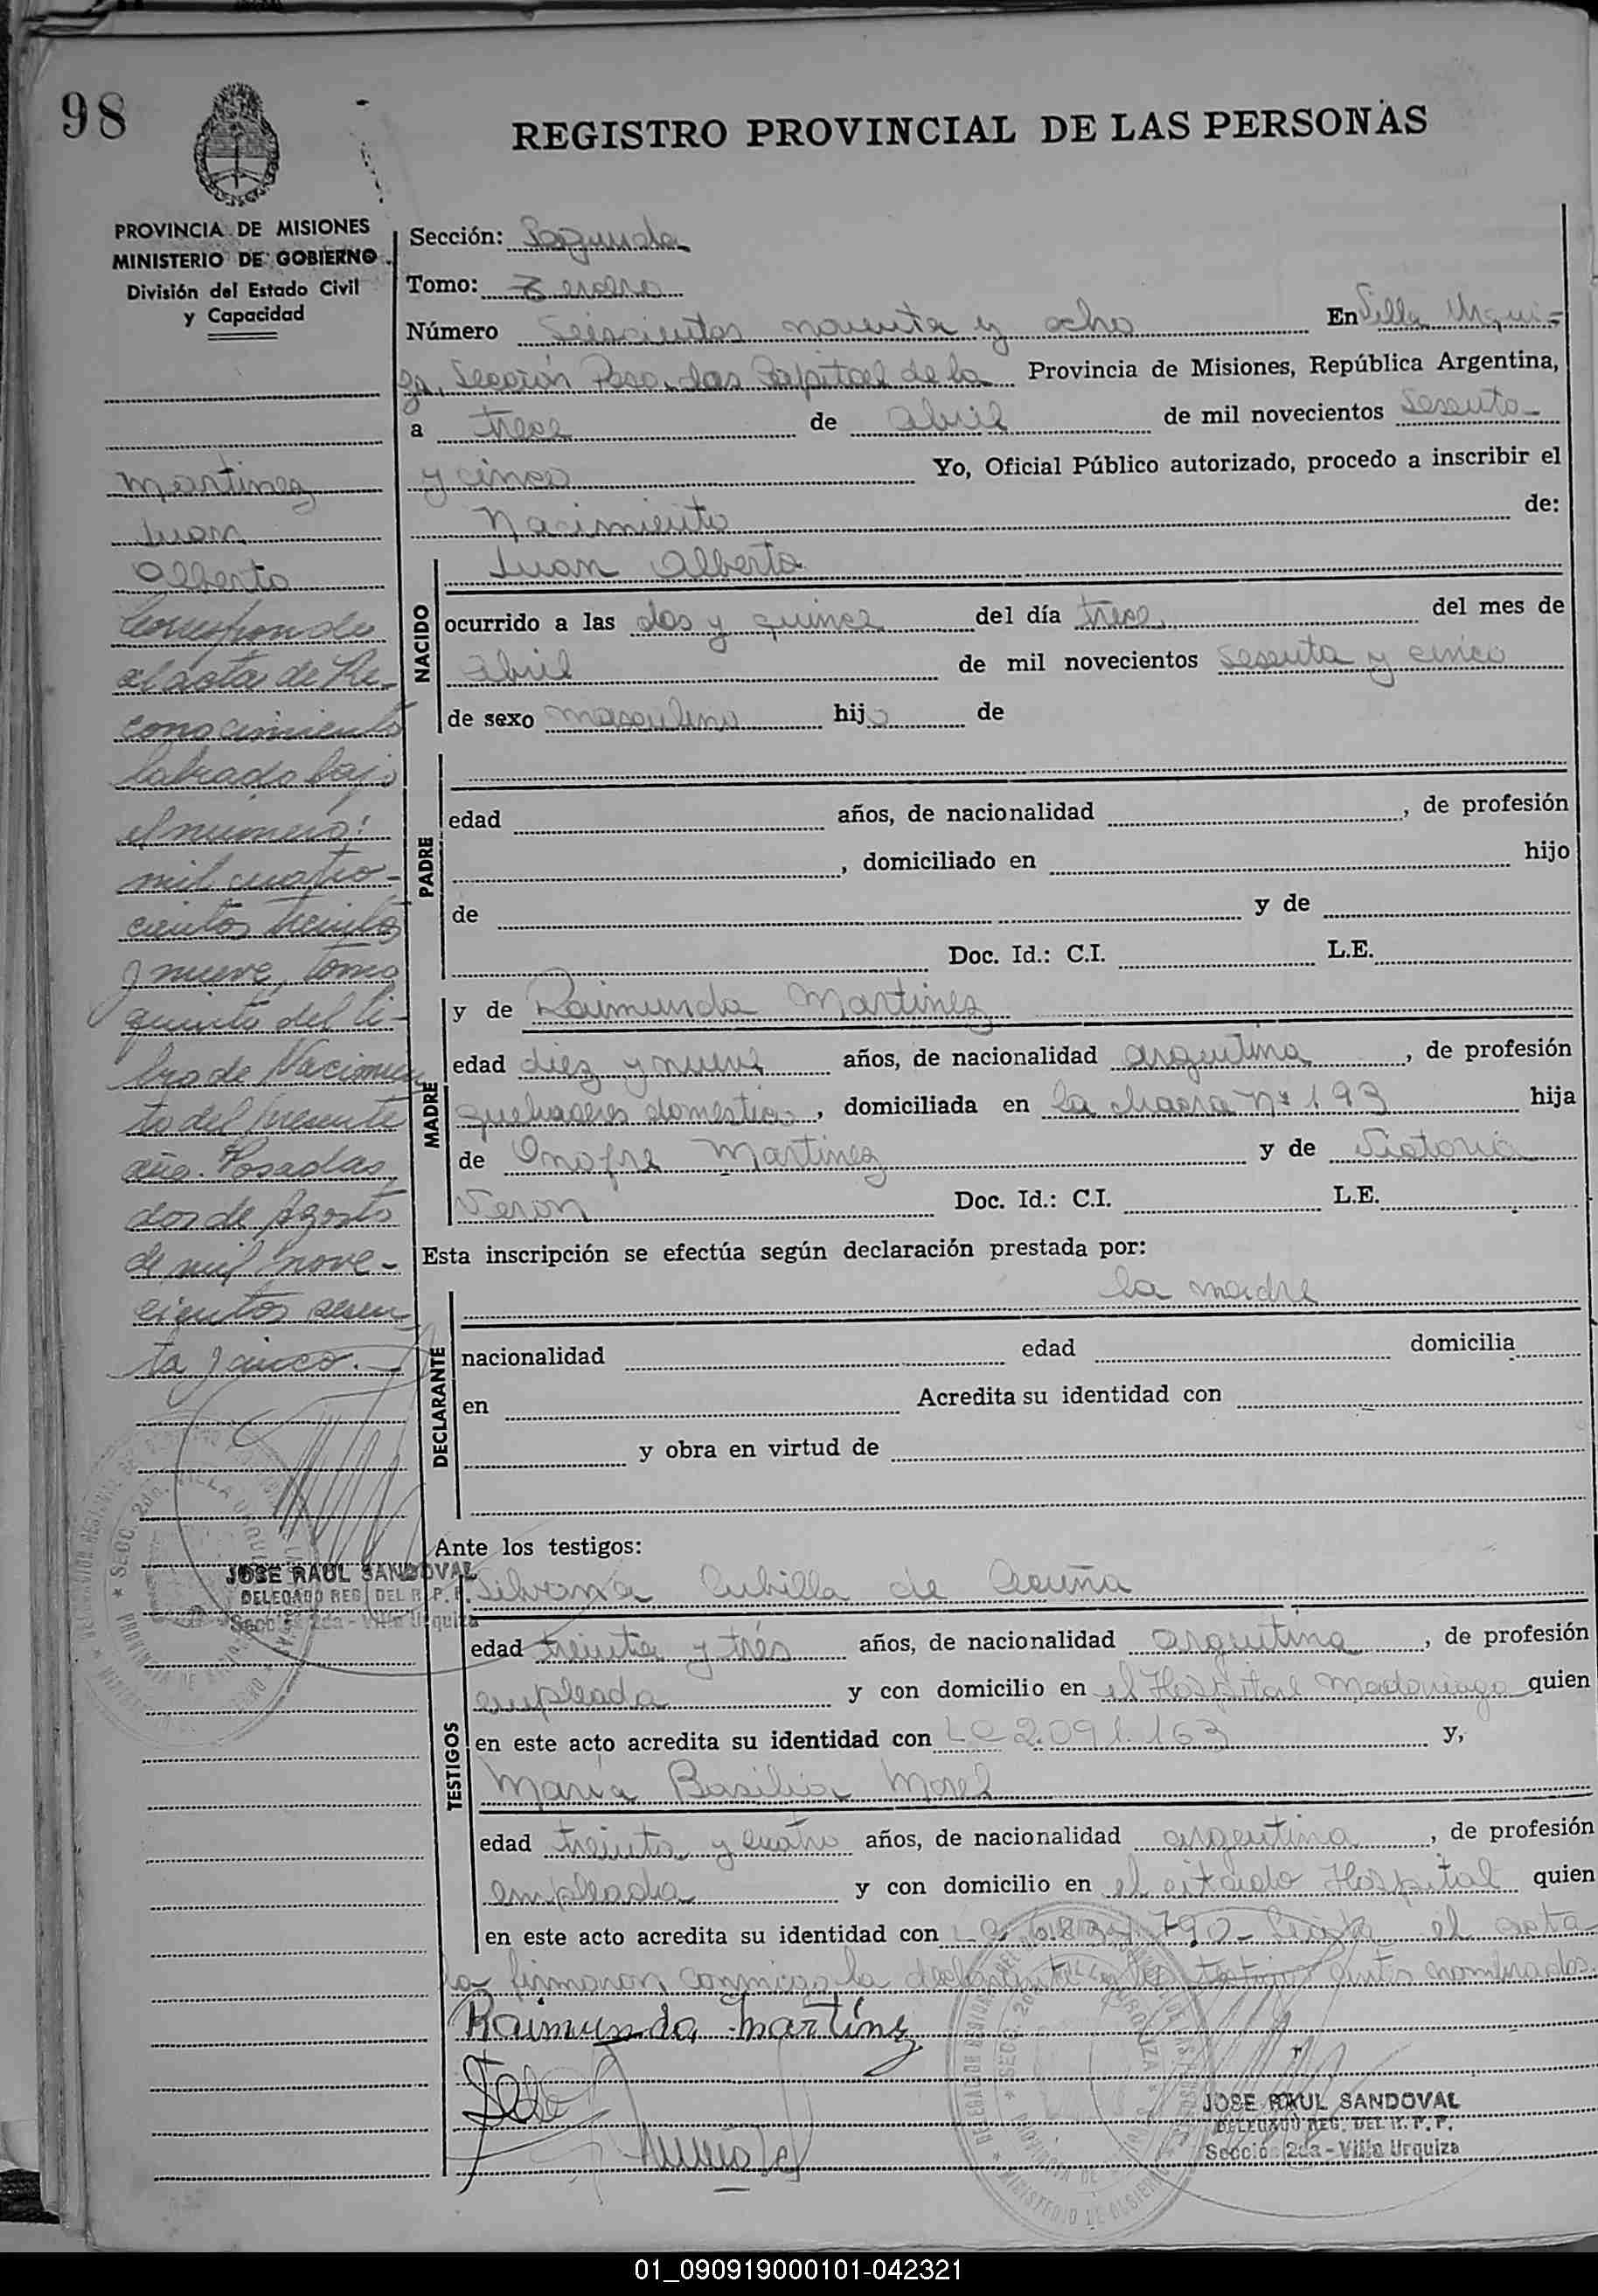 98
REGISTRO PROVINCIAL DE LAS PERSONAS
PROVINCIA DE MISIONES
MINISTERIO DE GOBIERNO
División del Estado Civil
y Capacidad
Martinez
Juan
Alberto
Corresponde
al acta de Re-
conocimiento
labrado bajo
el número:
mil cuatro-
cientos treinta
y nueve, tomo
quinto del li-
bro de Nacimien
to del presente
año. Posadas,
dos de Agosto
de mil nove-
cientos sesen
ta y cinco.
JOSE RAUL SANDOVAL
DELEGADO REG. DEL R. P. P.
Secció 2da - Villa Urquiza
Sección: Segunda
Tomo: Tercero
Número Seiscientos noventa y ocho En Villa Urqui-
za, Sección Posadas Capital de la Provincia de Misiones, República Argentina,
a trece de abril de mil novecientos sesenta
y cinco Yo, Oficial Público autorizado, procedo a inscribir el
Nacimiento de:
NACIDO
Juan Alberto
ocurrido a las dos y quince del día trece del mes de
abril de mil novecientos sesenta y cinco
de sexo masculino hijo de
PADRE
edad años, de nacionalidad , de profesión
, domiciliado en hijo
de y de
Doc. Id.: C.I. L.E.
MADRE
y de Raimunda Martinez
edad diez y nueve años, de nacionalidad argentina , de profesión
quehaceres domestico , domiciliada en la chacra nº 193 hija
de Onofre Martinez y de Victoria
Veron Doc. Id.: C.I. L.E.
Esta inscripción se efectúa según declaración prestada por:
DECLARANTE
la madre
nacionalidad edad domicilia
en Acredita su identidad con
y obra en virtud de
Ante los testigos:
TESTIGOS
Silvana Cubilla de Acuña
edad treinta y tres años, de nacionalidad argentina , de profesión
empleada y con domicilio en el Hospital Madariaga quien
en este acto acredita su identidad con LC 2.091.163 y,
Maria Basilia Morel
edad treinta y cuatro años, de nacionalidad argentina , de profesión
empleada y con domicilio en el citado Hospital quien
en este acto acredita su identidad con 790 el acta
la firmaron conmigo la declarante y los testigos nombrados.
Raimunda Martinez
JOSE RAUL SANDOVAL
DELEGADO REG. DEL R. P. P.
Secció 2da - Villa Urquiza
01_090919000101-042321